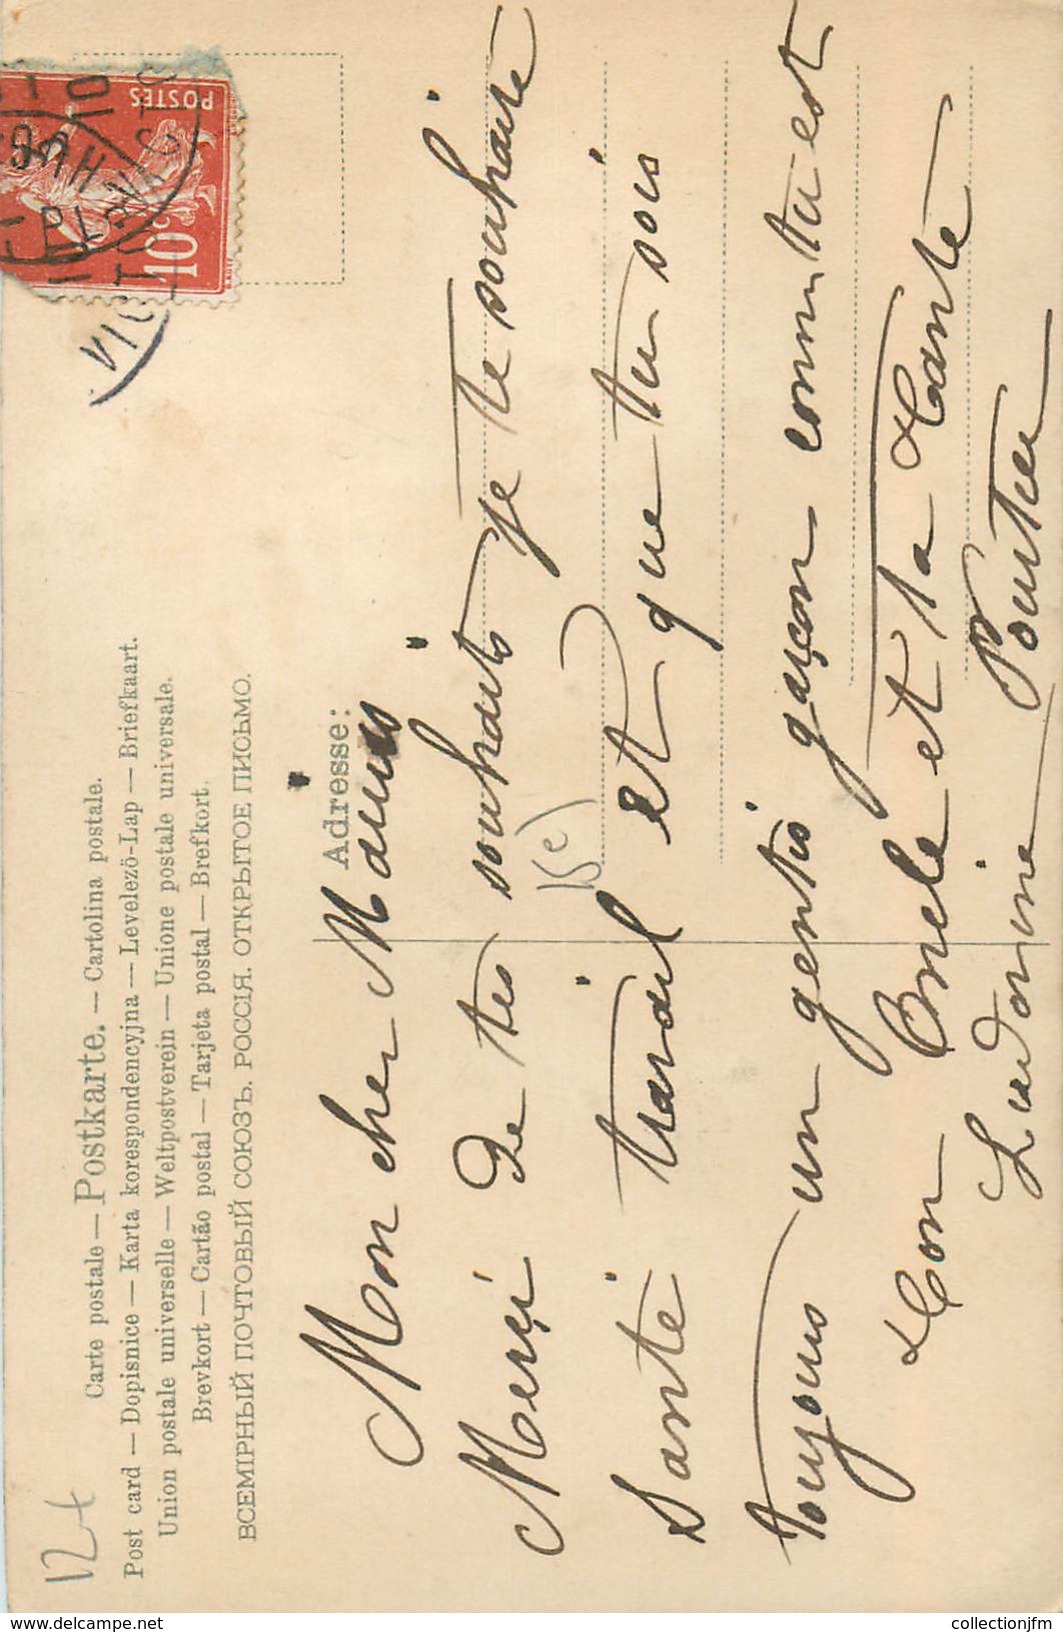 Carte postale — Postkarte. — Cartolina postale.
Post card — Dopisnice — Karta korespondencyjna — Levelezö-Lap — Briefkaart.
Union postale universelle — Weltpostverein — Unione postale universale.
Brevkort — Cartão postal — Tarjeta postal — Brefkort.
ВСЕМІРНЫЙ ПОЧТОВЫЙ СОЮЗЪ. РОССІЯ. ОТКРЫТОЕ ПИСЬМО.
POSTES
10c
Adresse:
Mon cher
Merçi de tes souhaits je te souhaite
Santé travail et que tu sois
toujours un gentis garçon comm tu est
ton Oncle et ta tante
Ludovine Poutier
15e
12t
delcampe.net
collectionjfm